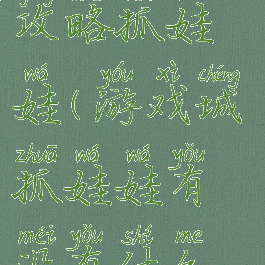 攻略抓娃
wá yóu xì chéng
娃(游戏城
zhuā wá wá yǒu
抓娃娃有
méi yǒu shí me
没有什么